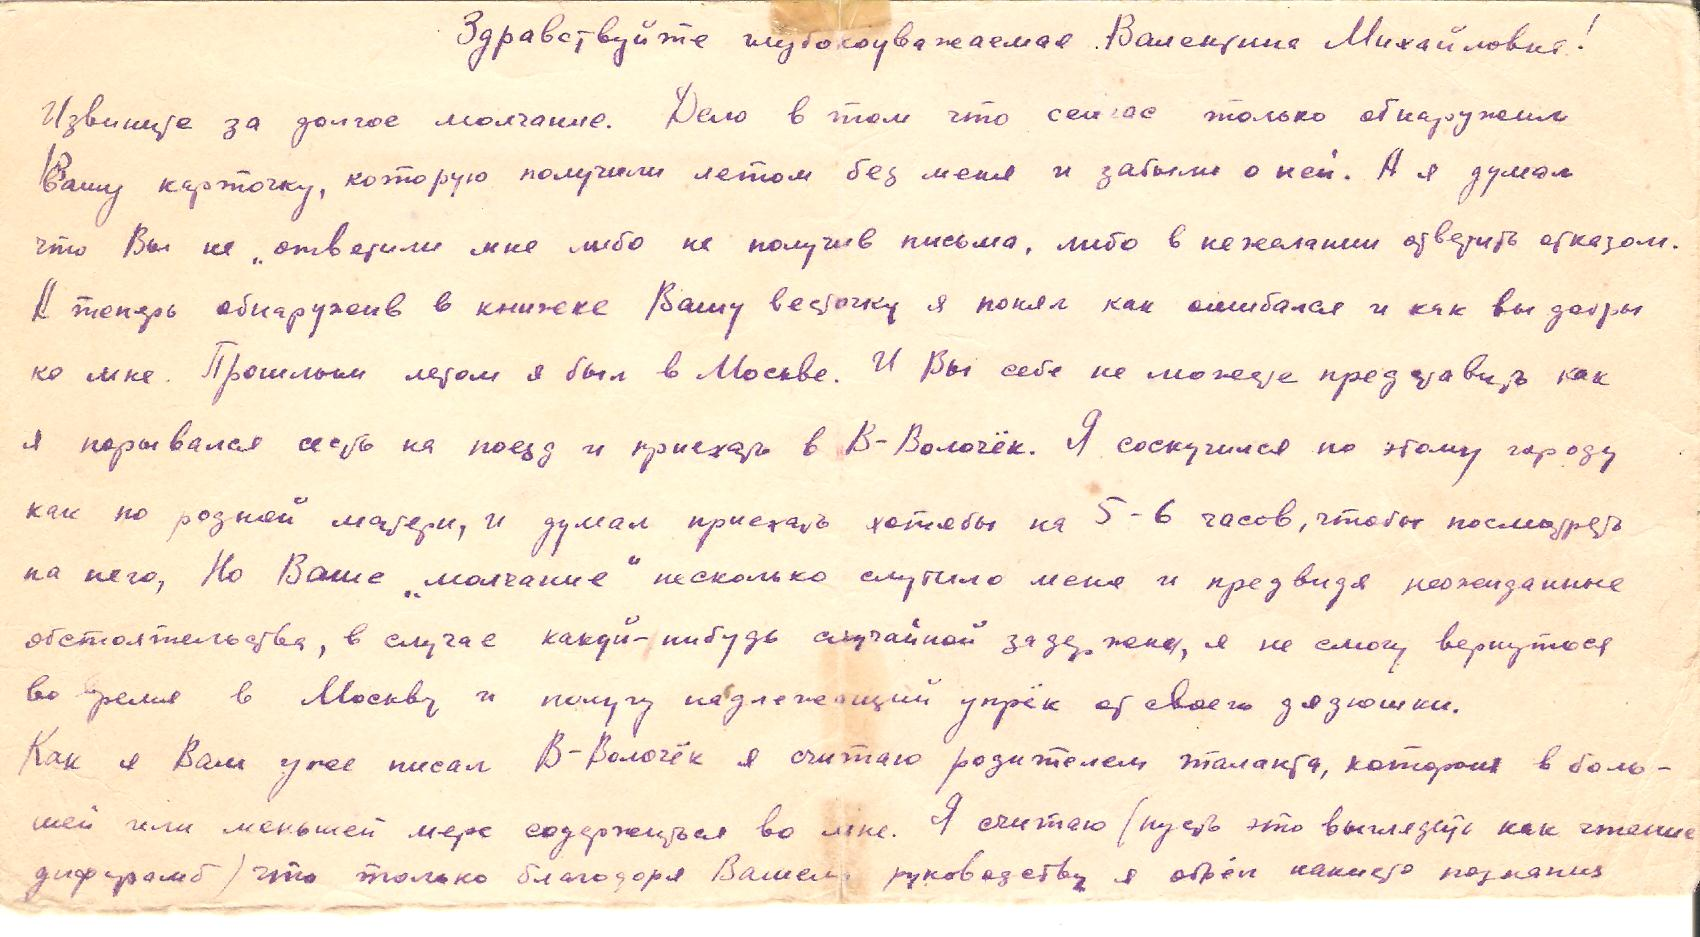 Здравствуйте глубокоуважаемая Валентина Михайловна!
Извините за долгое молчание. Дело в том что сейчас только обнаружили
Вашу карточку, которую получили летом без меня и забыли о ней. А я думал
что Вы не „ответили мне либо не получив письма, либо в нежелании ответить отказом.
А теперь обнаружив в книжке Вашу весточку я понял как ошибался и как вы добры
ко мне. Прошлым летом я был в Москве. И Вы себе не можете представить как
я порывался сесть на поезд и приехать в В-Волочёк. Я соскучился по этому городу
как по родной матери, и думал приехать хотябы на 5-6 часов, чтобы посмотреть
на него, Но Ваше „молчание“ несколько смутило меня и предвидя неожиданные
обстоятельства, в случае какой-нибудь случайной задержки, я не смогу вернутося
во время в Москву и получу надлежащий упрёк от своего дядюшки.
Как я Вам уже писал В-Волочёк я считаю родителем таланта, который в боль-
шей или меньшей мере содержиться во мне. Я считаю (пусть это выглядить как чтение
дифирамб) что только благодоря Вашему руководству я обрёл какието познания